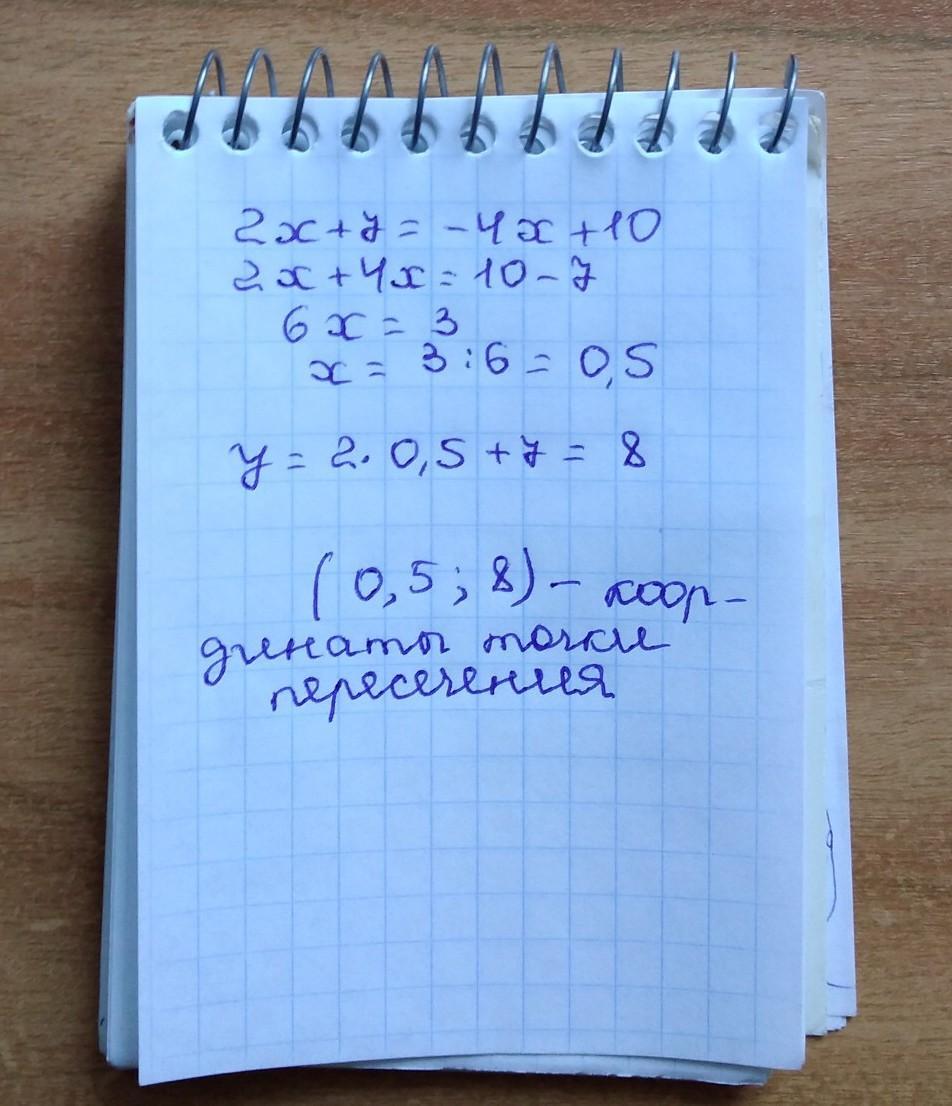 2x+7=-4x+10
2x+4x=10-7
6x=3
x=3:6=0,5
y=2·0,5+7=8
(0,5;8)-коор-
динаты точки
пересечения